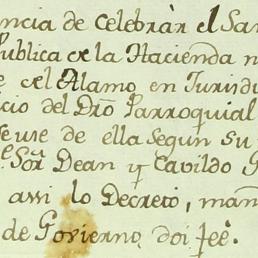 ncia de Celebràr el San
Publica de la Hacienda n
e el Alamo, en Jurisdi
cio del Dro Parroquial
se use de ella segun su
e Sõr Dean y Cavildo G
assi lo Decretò, man
de Govierno, doi feè.